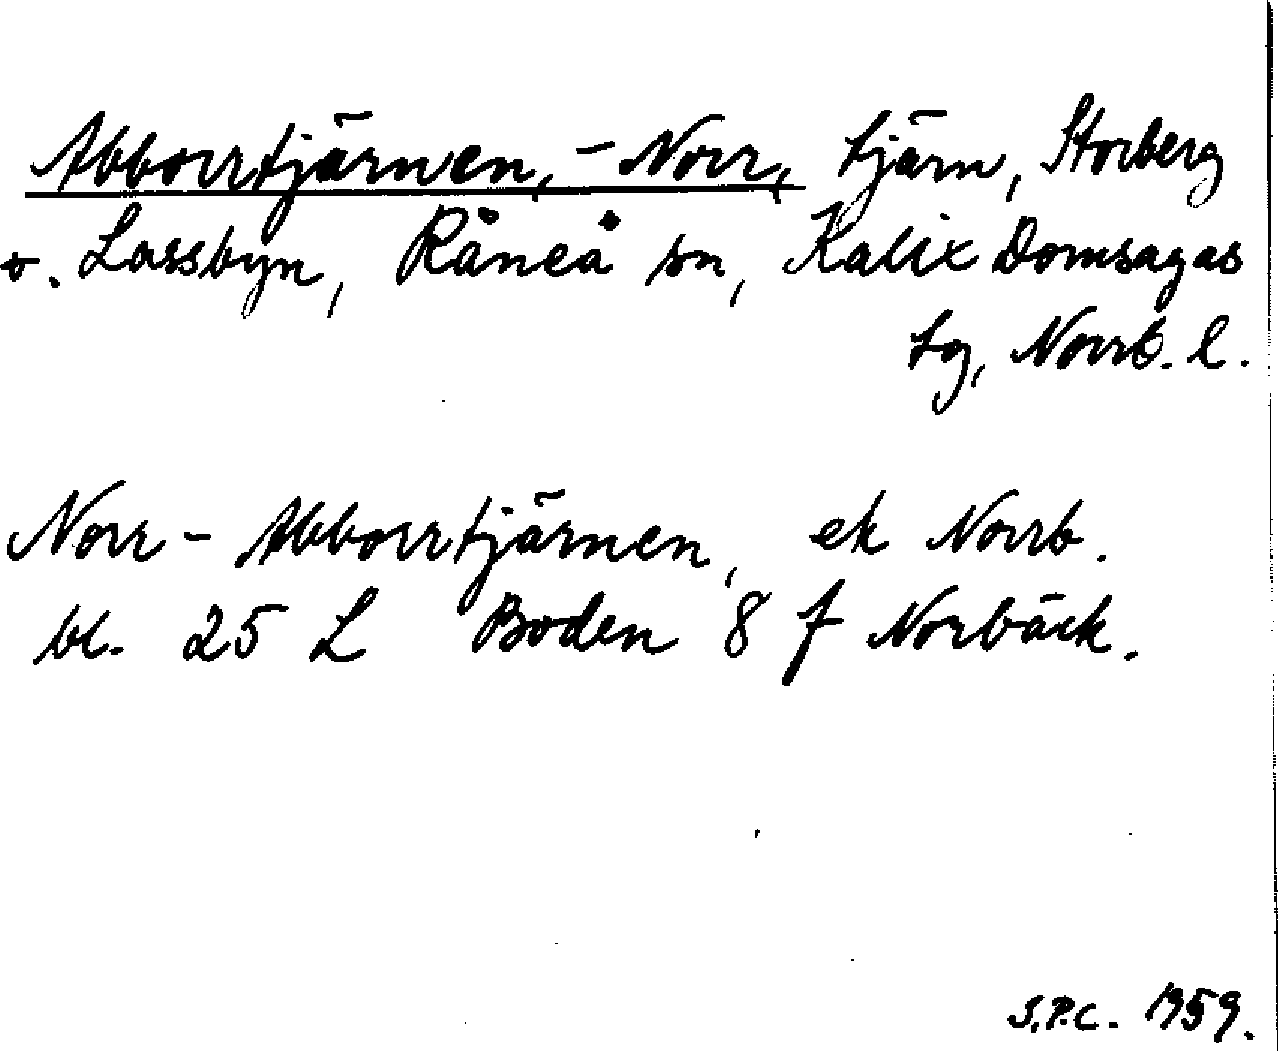 Abborrtjärnen, - Norr, tjärn, Storberg
o. Lassbyn, Råneå sn, Kalix Domsagas
tg, Norrb. l.
Norr - Abborrtjärnen, ek Norrb.
bl. 25 L Boden 8 f Norbäck.
S.P.C. 1959.